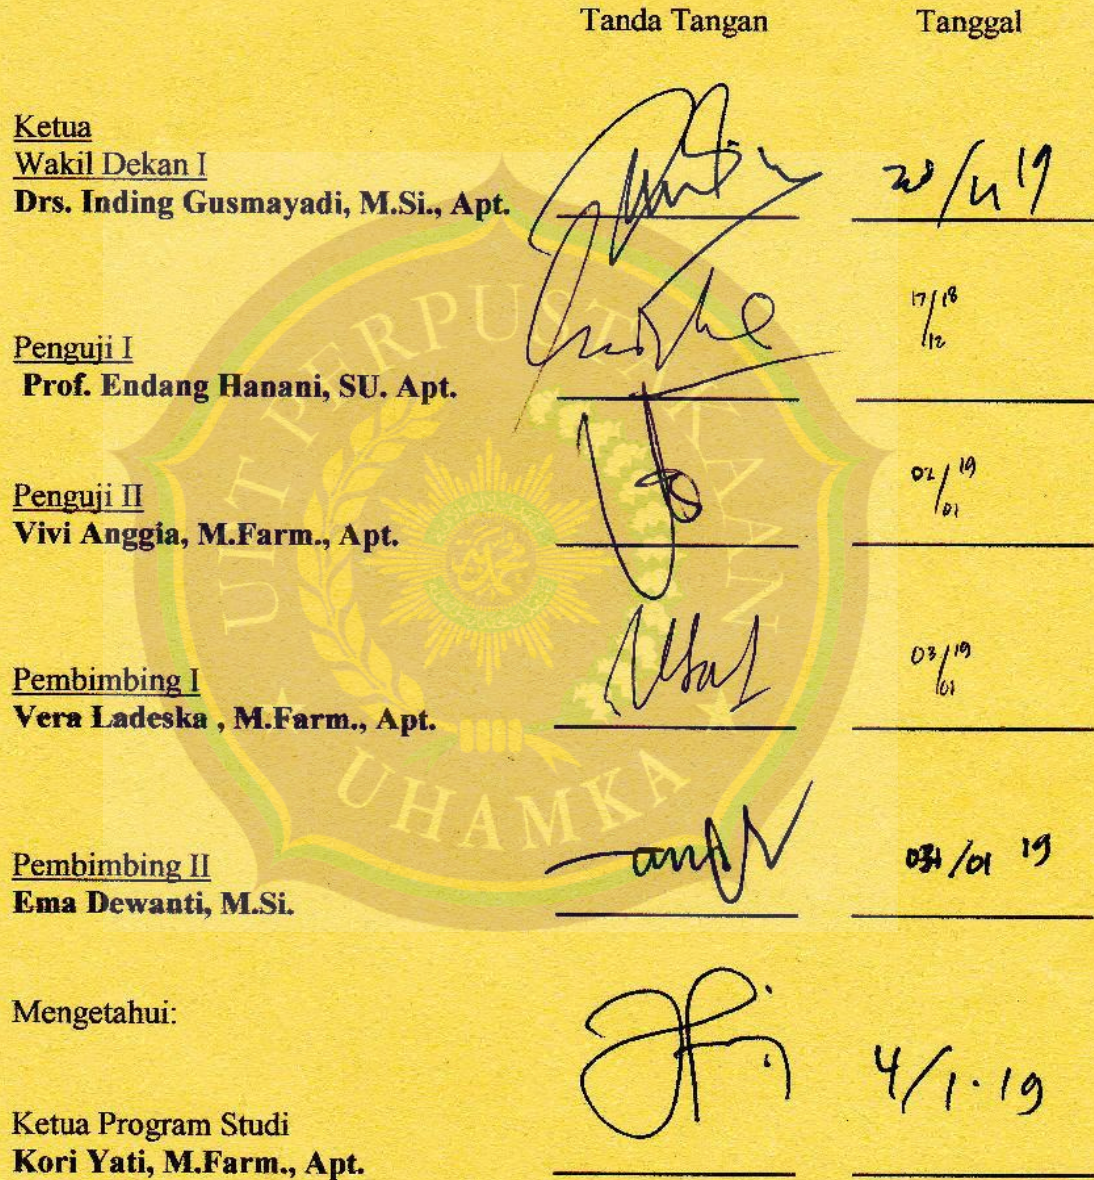 Tanda Tangan Tanggal
Ketua
Wakil Dekan I
Drs. Inding Gusmayadi, M.Si., Apt.
17/18
12
Penguji I
Prof. Endang Hanani, SU. Apt.
02/19
01
Penguji II
Vivi Anggia, M.Farm., Apt.
03/19
01
Pembimbing I
Vera Ladeska , M.Farm., Apt.
Pembimbing II /01 19
Ema Dewanti, M.Si.
Mengetahui:
4/1.19
Ketua Program Studi
Kori Yati, M.Farm., Apt.
UPT PERPUSTAKAAN
UHAMKA